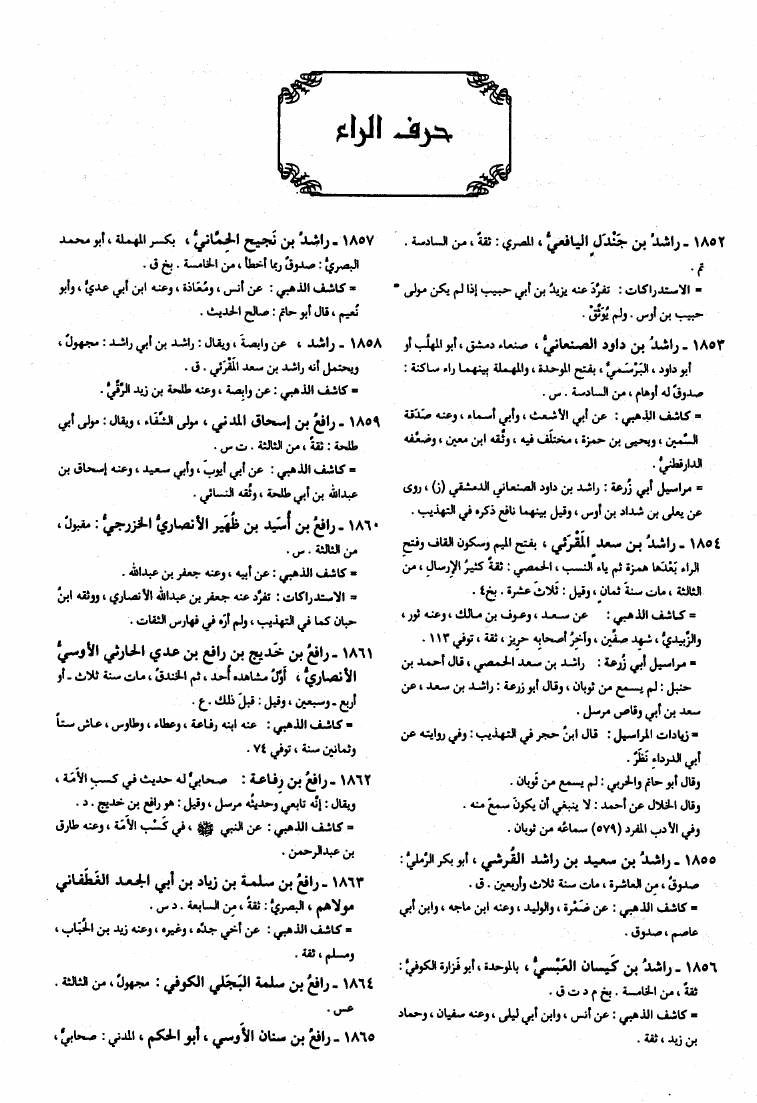 حرف الراء
١٨٥٢ ـ راشدُ بن جَنْدَلٍ اليافعيُّ ، المصري : ثقةٌ ، من السادسة .
تم .
= الاستدراكات : تفرَّدَ عنه يزيدُ بن أبي حبيب إذا لم يكن مولى
حبيب بن أوس . ولم يُوَثَّقْ .
١٨٥٣ ـ راشدُ بن داود الصنعانيُّ ، صنعاء دمشق ، أبو المهلَّب أو
أبو داود ، البَرْسَميُّ ، بفتح الموحدة ، والمهملة بينهما راء ساكنة :
صدوقٌ له أوهام ، من السادسة . س .
= كاشف الذهبي : عن أبي الأشعث ، وأبي أسماء ، وعنه صَدَقة
السَّمين ، ويحيى بن حمزة ، مختلَف فيه ، وثَّقه ابن معين ، وضعَّفه
الدارقطنيُّ .
= مراسيل أبي زُرعة : راشد بن داود الصنعاني الدمشقي (ز) ، روى
عن يعلى بن شداد بن أوس ، وقيل بينهما نافع ذكره في التهذيب .
١٨٥٤ ـ راشدُ بن سعدٍ المَقْرَئي ، بفتح الميم وسكون القاف وفتح
الراء بَعْدَها همزة ثم ياء النسب ، الحمصي : ثقةٌ كثيرُ الإرسالِ ، من
الثالثة ، مات سنة ثمانٍ ، وقيل : ثلاثَ عشرة . بخ ٤ .
= كاشف الذهبي : عن سعد ، وعوف بن مالك ، وعنه ثور ،
والزُّبيديُّ ، شهد صفِّين ، وآخِرُ أصحابه حريز ، ثقة ، توفي ١١٣ .
= مراسيل أبي زُرعة : راشد بن سعد الحمصي ، قال أحمد بن
حنبل : لم يسمع من ثوبان ، وقال أبو زرعة : راشد بن سعد ، عن
سعد بن أبي وقاص مرسل .
= زيادات المراسيل : قال ابنُ حجر في التهذيب : وفي روايته عن
أبي الدرداءِ نَظَرٌ .
وقال أبو حاتم والحربي : لم يسمع من ثوبان .
وقال الخلال عن أحمد : لا ينبغي أن يكونَ سمعَ منه .
وفي الأدب المفرد (٥٧٩) سماعُه من ثوبان .
١٨٥٥ ـ راشدُ بن سعيد بن راشد القُرشي ، أبو بكر الرَّمليُّ :
صدوقٌ ، من العاشرة ، مات سنة ثلاث وأربعين . ق .
= كاشف الذهبي : عن ضَمْرة ، والوليد ، وعنه ابن ماجه ، وابن أبي
عاصم ، صدوق .
١٨٥٦ ـ راشدُ بن كَيسان العَبْسيُّ ، بالموحدة ، أبو فَزارة الكوفيُّ :
ثقةٌ ، من الخامسة . بخ م د ت ق .
= كاشف الذهبي : عن أنس ، وابن أبي ليلى ، وعنه سفيان ، وحماد
بن زيد ، ثقة .
١٨٥٧ ـ راشدُ بن نَجيح الحِمَّانيُّ ، بكسر المهملة ، أبو محمد
البصريُّ : صدوقٌ ربما أخطأ ، من الخامسة . بخ ق .
= كاشف الذهبي : عن أنس ، ومُعَاذة ، وعنه ابن أبي عديٍّ ، وأبو
نُعيم ، قال أبو حاتم : صالح الحديث .
١٨٥٨ ـ راشد ، عن وابصة ، ويقال : راشد بن أبي راشد : مجهولٌ ،
ويحتمل أنه راشد بن سعد المَقْرَئي . ق .
= كاشف الذهبي : عن وابصة ، وعنه طلحة بن زيد الرَّقِّيُّ .
١٨٥٩ ـ رافعُ بن إسحاق المدني ، مولى الشِّفَاء ، ويقال : مولى أبي
طلحة : ثقةٌ ، من الثالثة . ت س .
= كاشف الذهبي : عن أبي أيوبَ ، وأبي سعيد ، وعنه إسحاق بن
عبدالله بن أبي طلحة ، وثَّقه النسائي .
١٨٦٠ ـ رافعُ بن أُسَيد بن ظُهَير الأنصاريُّ الخزرجيُّ : مقبولٌ ،
من الثالثة . س .
= كاشف الذهبي : عن أبيه ، وعنه جعفر بن عبدالله .
= الاستدراكات : تفرَّد عنه جعفر بن عبدالله الأنصاري ، ووثقه ابنُ
حبان كما في التهذيب ، ولم أرَه في فهارس الثقات .
١٨٦١ ـ رافعُ بن خَديج بن رافع بن عدي الحارثي الأوسيُّ
الأنصاريُّ ، أوَّلُ مشاهده أُحد ، ثم الخندقُ ، مات سنة ثلاث ـ أو
أربع ـ وسبعين ، وقيل : قبلَ ذلك . ع .
= كاشف الذهبي : عنه ابنه رفاعة ، وعطاء ، وطاوس ، عاش ستاً
وثمانين سنة ، توفي ٧٤ .
١٨٦٢ ـ رافعُ بن رِفاعة : صحابيٌّ له حديث في كسبِ الأَمَة ،
ويقال : إنَّه تابعي وحديثُه مرسل ، وقيل : هو رافع بن خديج . د .
= كاشف الذهبي : عن النبي ﷺ ، في كَسْب الأَمَة ، وعنه طارق
بن عبدالرحمن .
١٨٦٣ ـ رافعُ بن سلمة بن زياد بن أبي الجعد الغَطَفاني
مولاهم ، البصريُّ : ثقةٌ ، من السابعة . د س .
= كاشف الذهبي : عن أخي جدِّه ، وغيره ، وعنه زيد بن الحُبَاب ،
ومسلم ، ثقة .
١٨٦٤ ـ رافعُ بن سلمة البَجَلي الكوفي : مجهولٌ ، من الثالثة .
عس .
١٨٦٥ ـ رافعُ بن سنان الأَوسي ، أبو الحكم ، المدني : صحابيٌّ ،